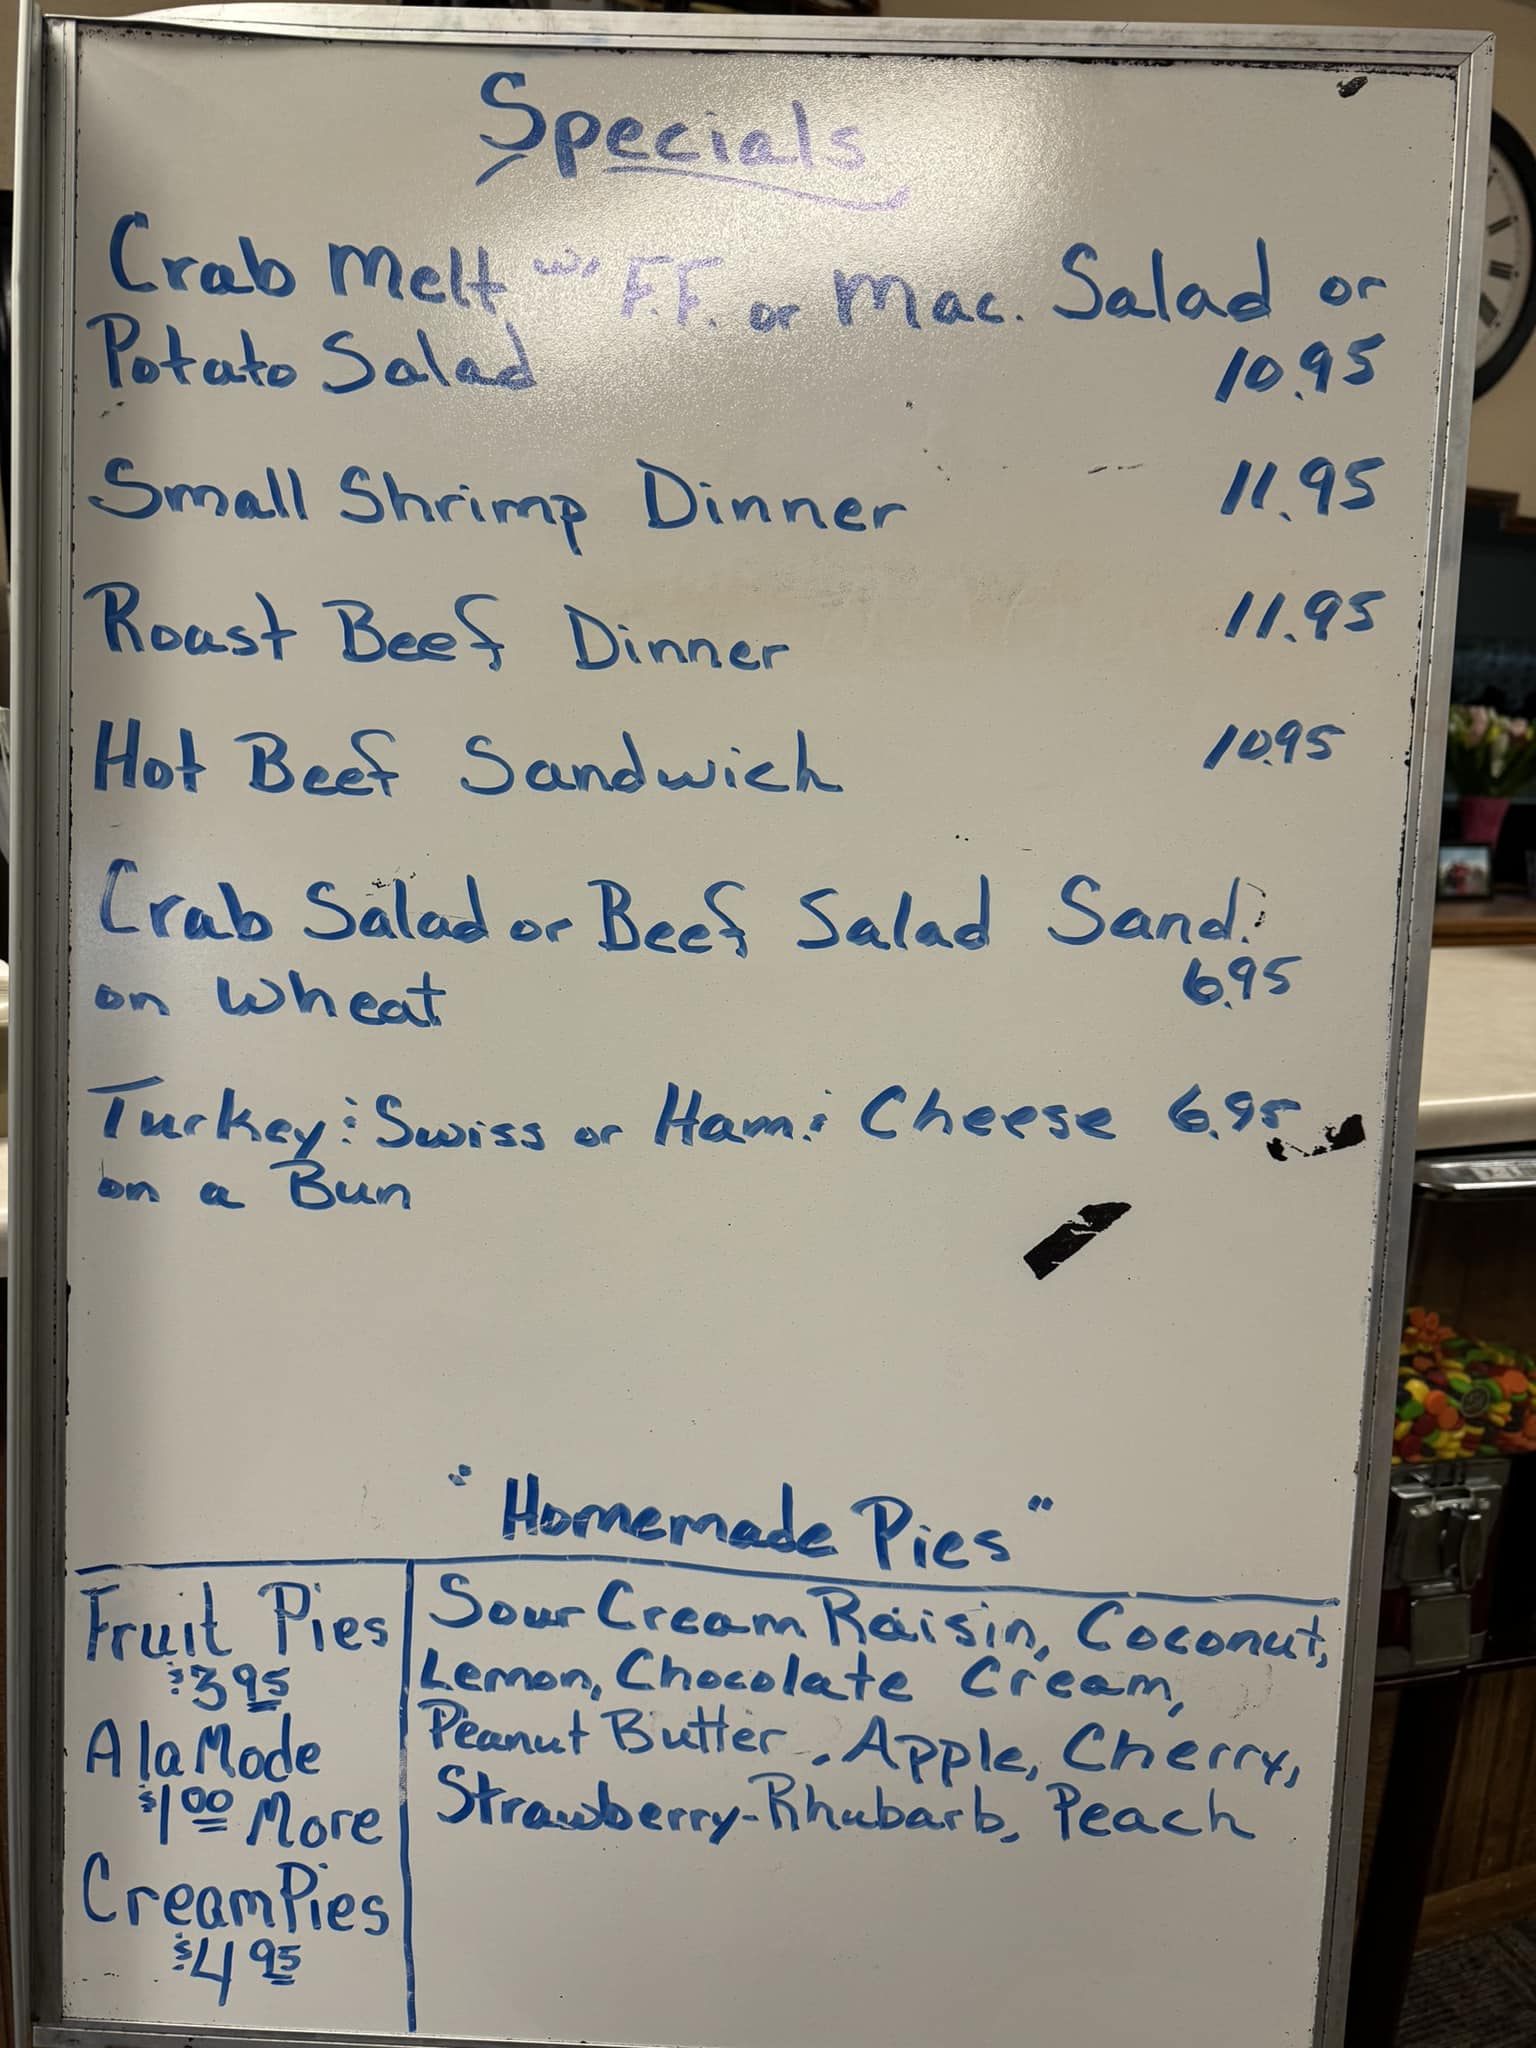 Specials
Crab Melt w/ F.F. or Mac. Salad or
Potato Salad 10.95
Small Shrimp Dinner 11.95
Roast Beef Dinner 11.95
Hot Beef Sandwich 10.95
Crab Salad or Beef Salad Sand.
on Wheat 6.95
Turkey & Swiss or Ham & Cheese 6.95
on a Bun
"Homemade Pies"
Fruit Pies
$3.95
A la Mode
$1.00 More
Cream Pies
$4.95
Sour Cream Raisin, Coconut,
Lemon, Chocolate Cream,
Peanut Butter, Apple, Cherry,
Strawberry-Rhubarb, Peach